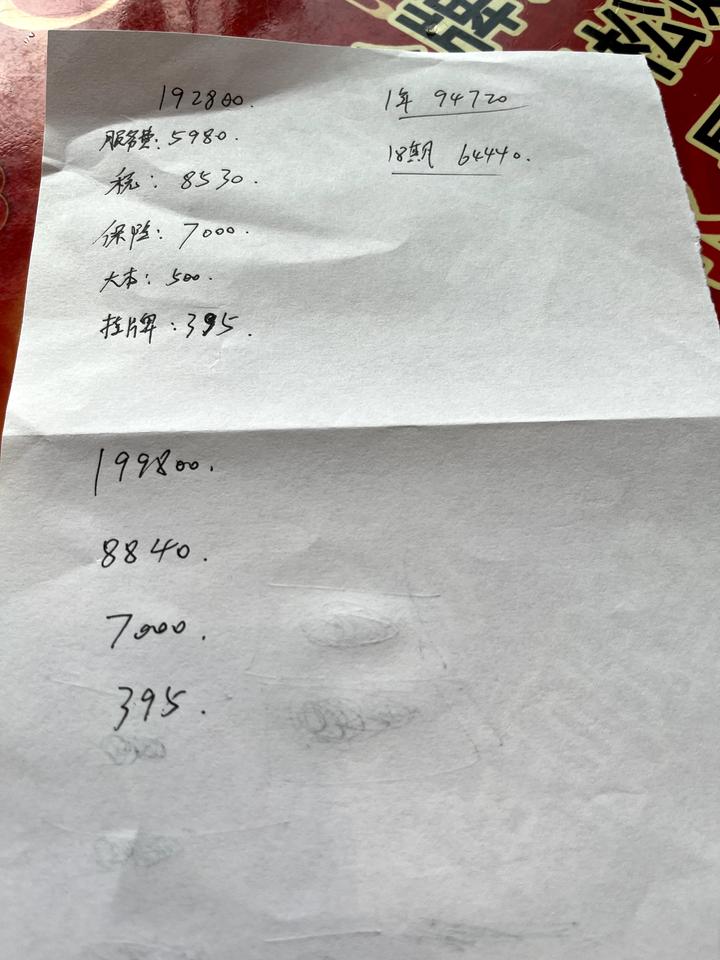 192800.
服务费:5980.
税:8530.
保险:7000.
大本:500.
挂牌:395.
1年 94720
18期 64440.
199800.
8840.
7000.
395.
牌